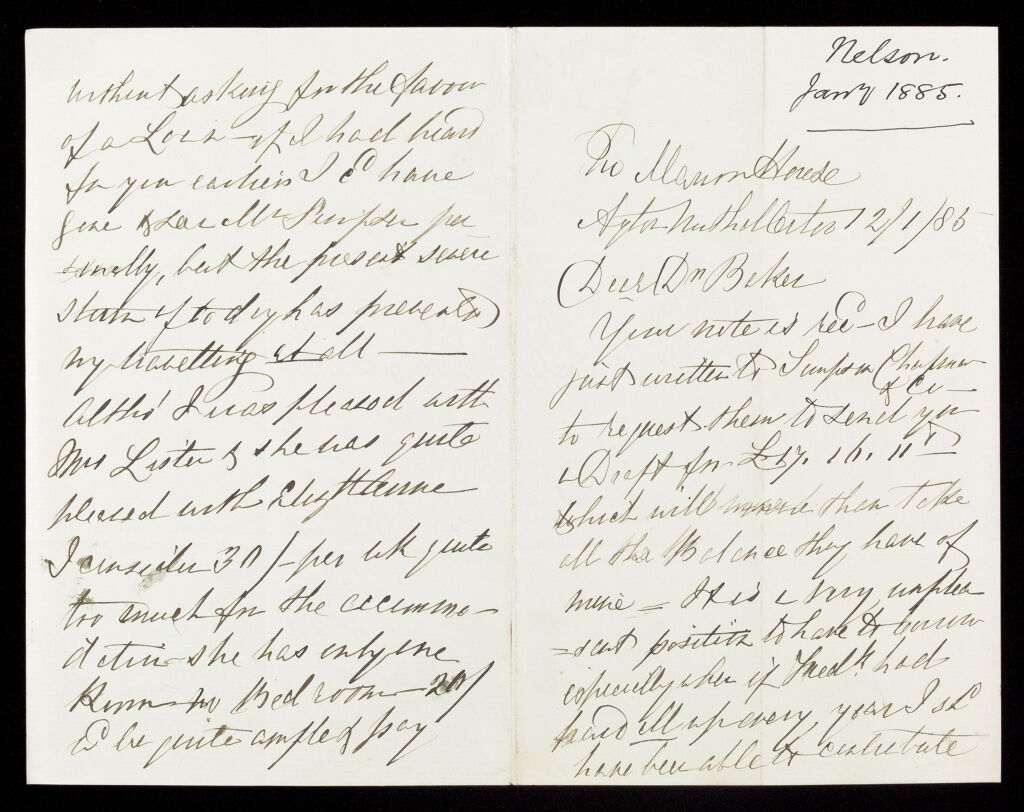 Nelson.
Jany 1885.
The Manor House
Ayton 12/1/85
Dear Dr Baker
Your note is recd - I have
just written to Simpson Chapman
& Co -
to request them to send you
a Draft for £17. 16. 11
which will more than take
all the Balance they have of
mine - It is a very unplea
=sant position to have to borrow
especially when if Fredk. had
paid all up every year I shd
have been able to contribute
without asking for the favour
of a Loan - if I had heard
fm you earlier I cd have
gone & saw Mr Simpson per
sonally, but the present severe
storm of today has prevented
my travelling at all ——
Altho' I was pleased with
Mrs Lister & she was quite
pleased with Elizth Anne
I consider 30/- per wk quite
too much for the accommo-
dation she has only one
Room no Bed room - 20/
wd be quite ample & pay